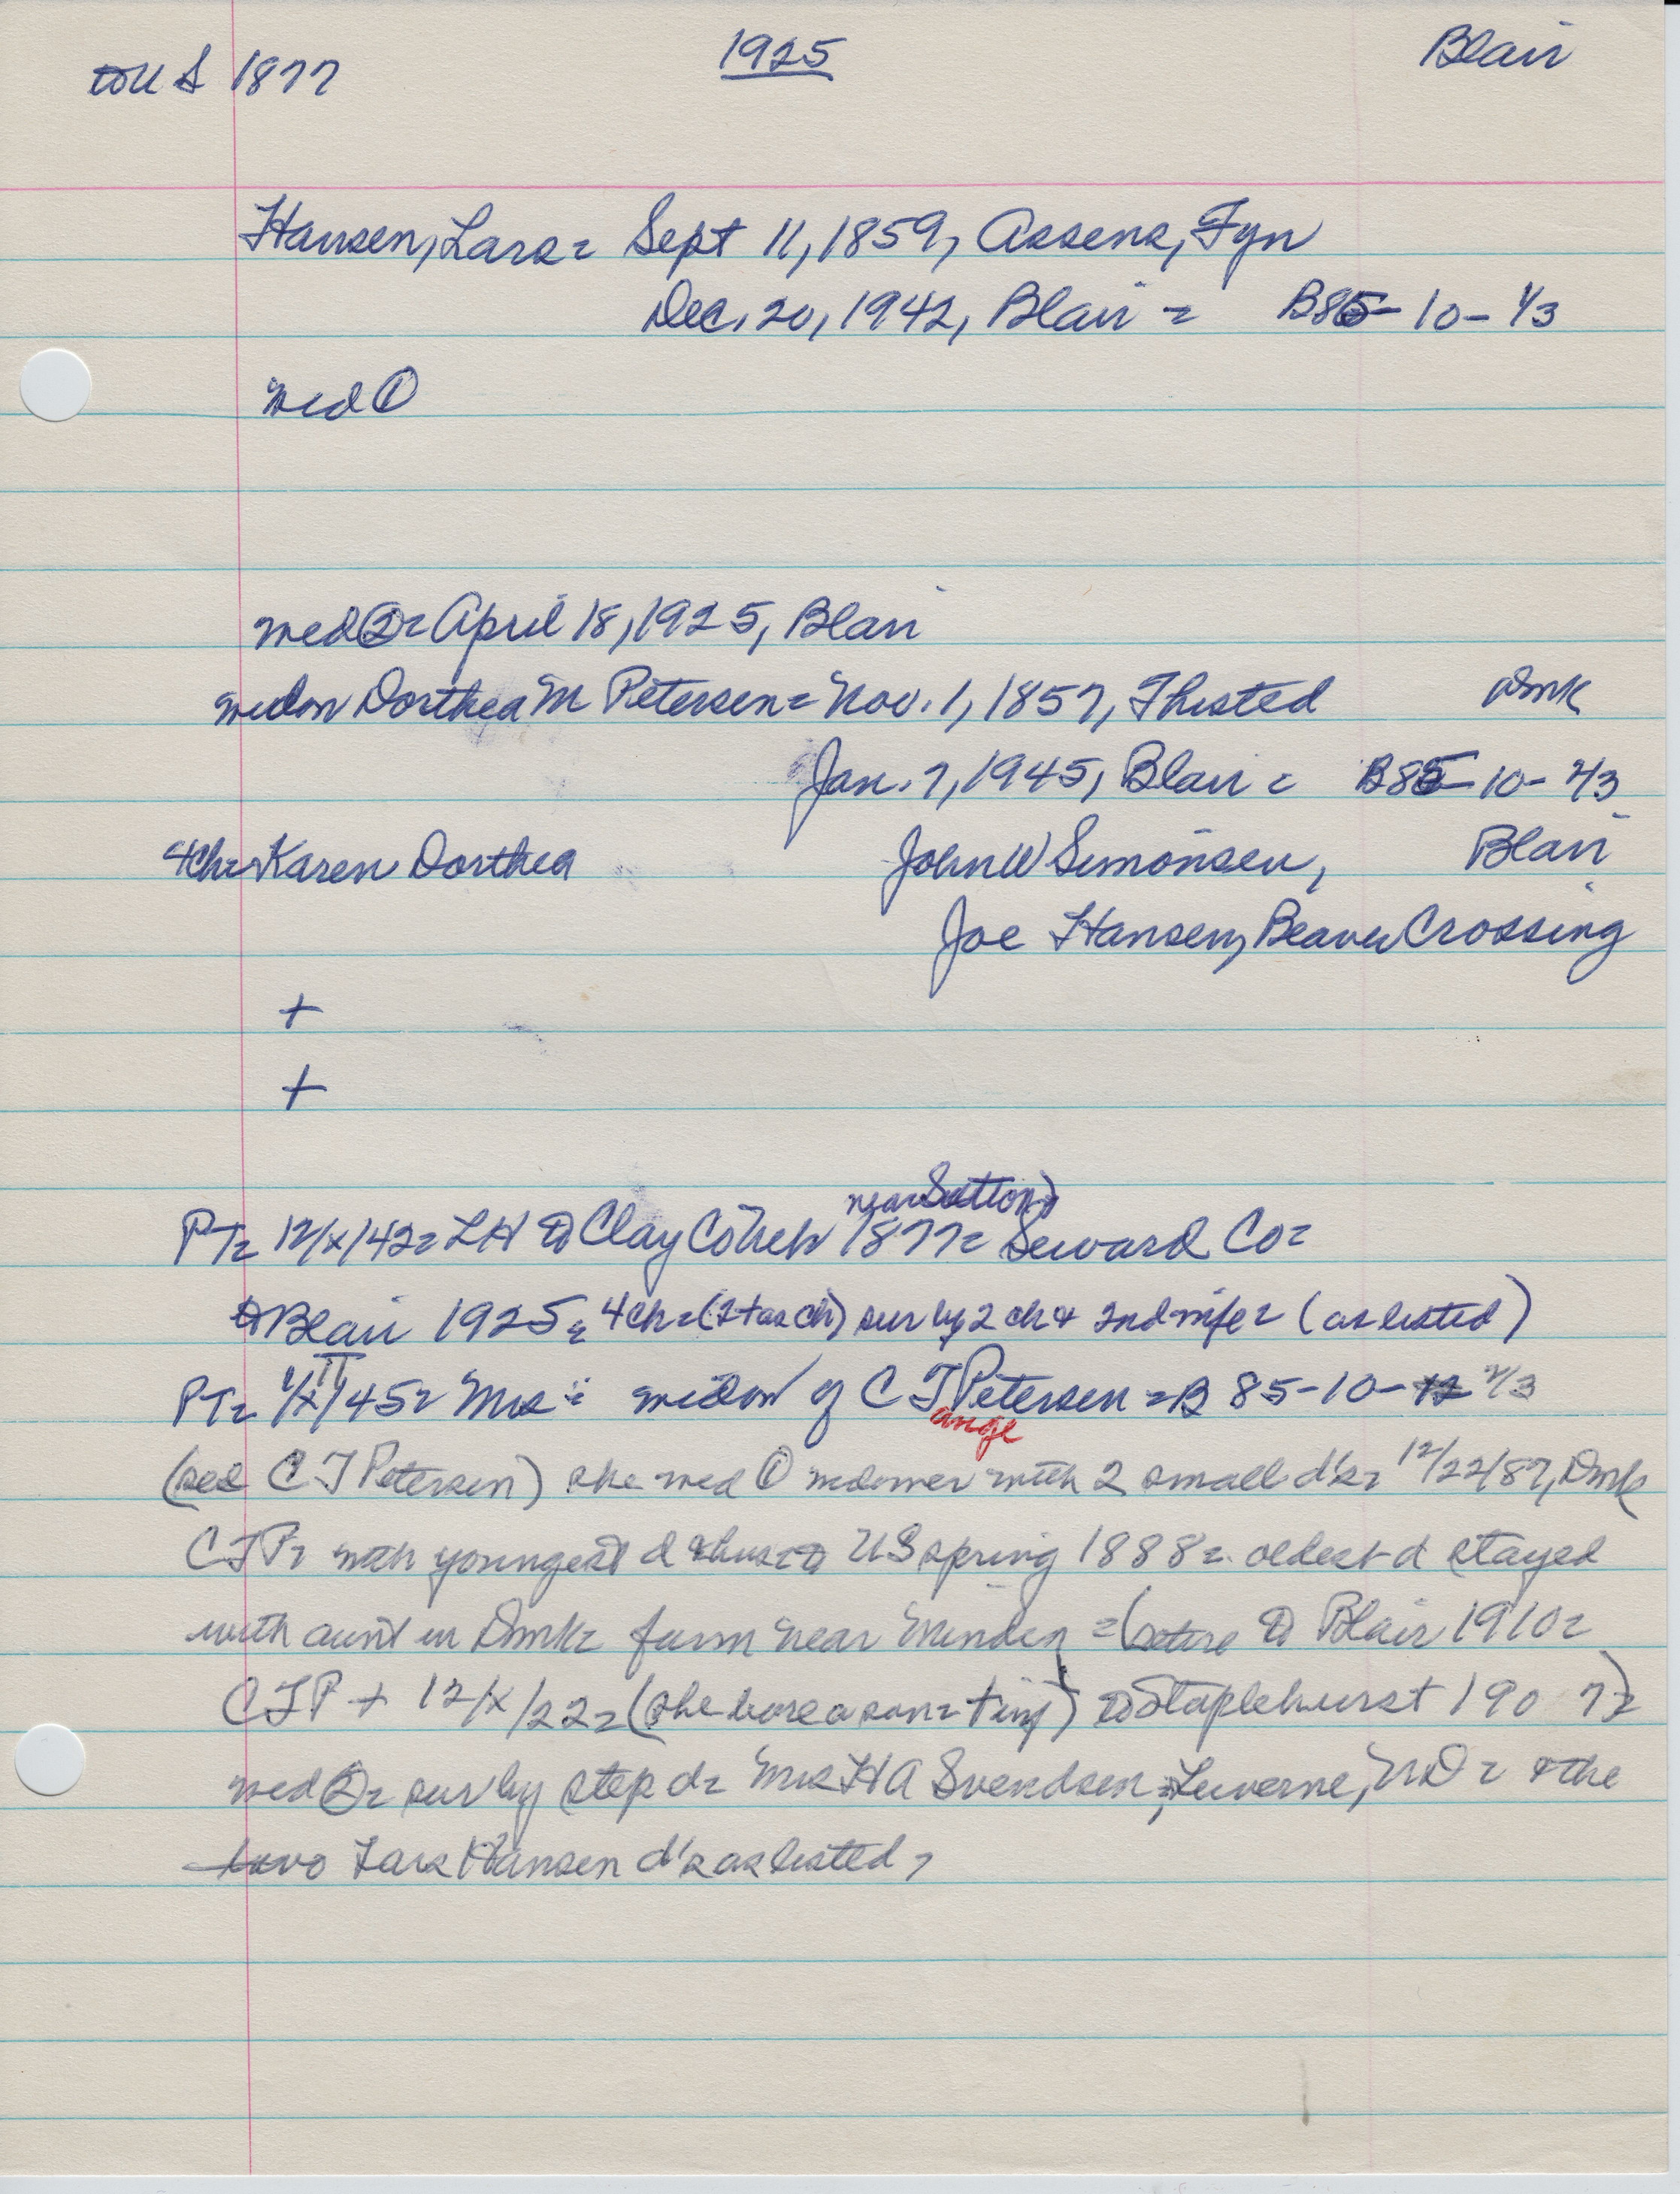 to U S 1877 1925 Blair
Hansen, Lars = Sept 11, 1859, Assens, Fyn
Dec. 20, 1942, Blair = B85-10-1/3
med ①
med ② = April 18, 1925, Blair
widow Dorthea M Petersen = Nov. 1, 1857, Thisted Dmk
Jan. 7, 1945, Blair = B85-10-2/3
4ch = Karen Dorthea John W Simonsen, Blair
Joe Hansen, Beaver Crossing
+
+
near Sutton)
PT = 12/x/42 = LH to Clay Co Neb 1877 = Seward Co =
to Blair 1925 = 4ch = (2 + as ch) sur by 2 ch & 2nd wife = (as listed)
PT = 1/x/45 = Mrs = widow of C T Petersen = B 85-10- 2/3
ange
(see C T Petersen) she med ① widower with 2 small d's = 12/22/87, Dmk
CTP = with youngest d & hus = to US spring 1888 = oldest d stayed
with aunt in Dmk = farm near Minden = (retire to Blair 1910 =
CTP + 12/x/22 = (she bore a son = + inf) to Staplehurst 1907) =
med ② = sur by step d = Mrs H A Svendsen, Luverne, ND = & the
two Lars Hansen d's as listed,